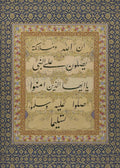 ان الله وملائكته
يصلون على النبي
يا ايها الذين امنوا
صلوا عليه وسلموا
تسليما